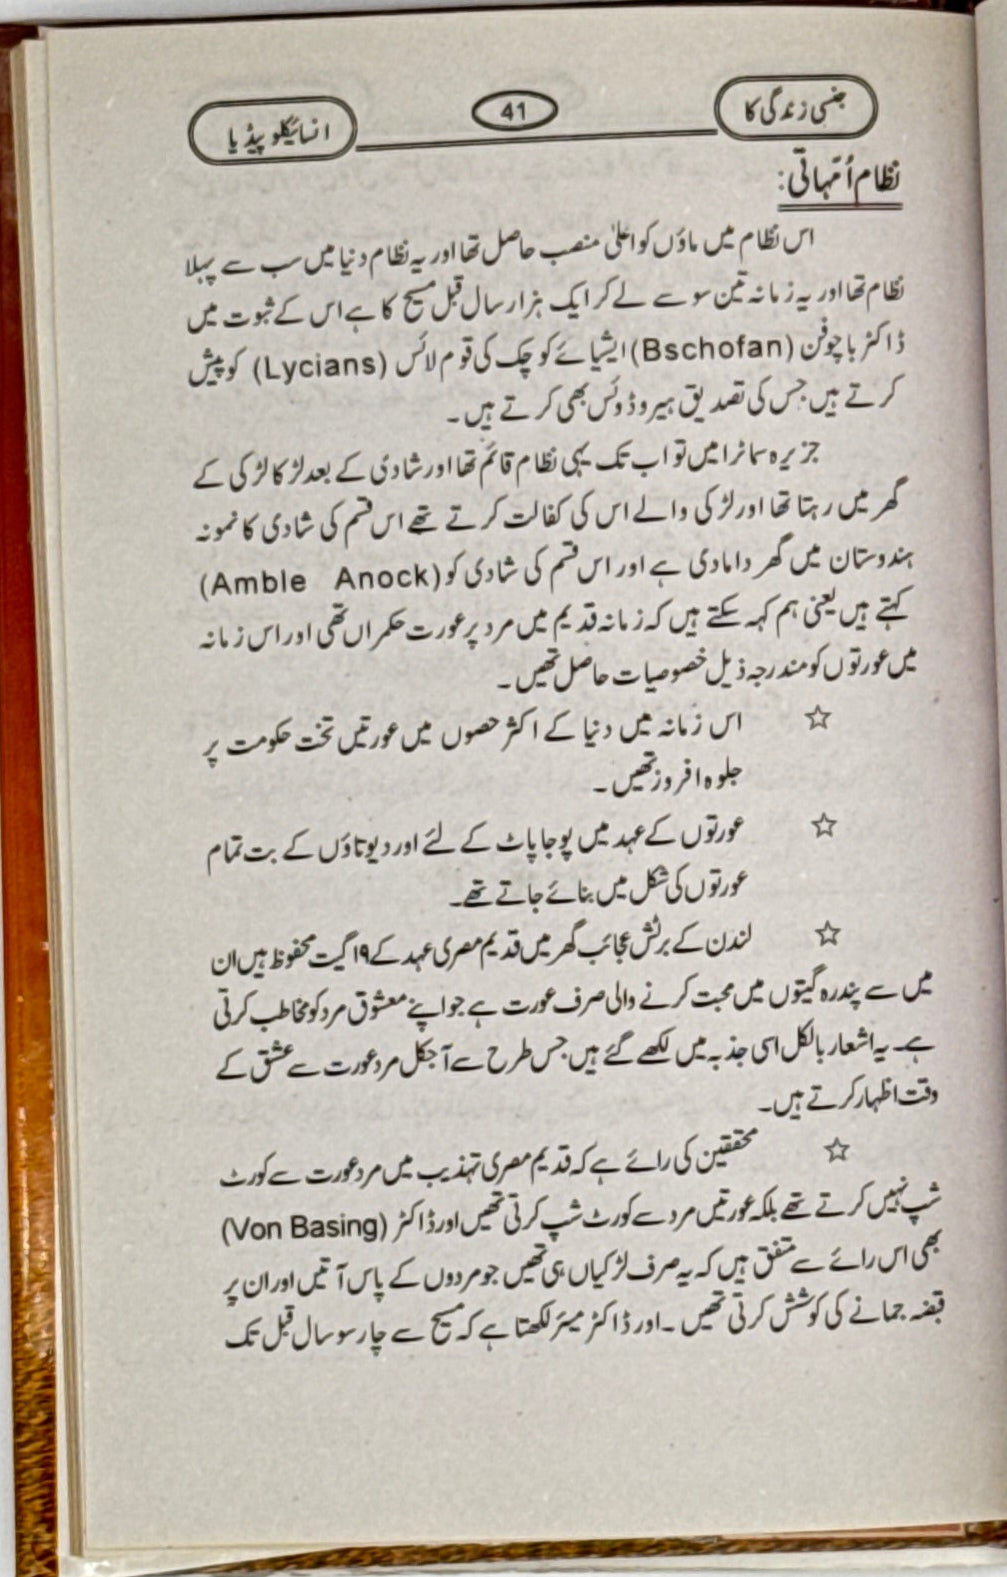 جنسی زندگی کا
41
انسائیکلوپیڈیا
نظام اُمّہاتی:
اس نظام میں ماؤں کو اعلیٰ منصب حاصل تھا اور یہ نظام دنیا میں سب سے پہلا
نظام تھا اور یہ زمانہ تین سو سے لے کر ایک ہزار سال قبل مسیح کا ہے اس کے ثبوت میں
ڈاکٹر باچوفن (Bschofan) ایشیائے کوچک کی قوم لائس (Lycians) کو پیش
کرتے ہیں جس کی تصدیق ہیروڈوٹس بھی کرتے ہیں۔
جزیرہ سماٹرا میں تو اب تک یہی نظام قائم تھا اور شادی کے بعد لڑکا لڑکی کے
گھر میں رہتا تھا اور لڑکی والے اس کی کفالت کرتے تھے اس قسم کی شادی کا نمونہ
ہندوستان میں گھر دامادی ہے اور اس قسم کی شادی کو (Amble Anock)
کہتے ہیں یعنی ہم کہہ سکتے ہیں کہ زمانہ قدیم میں مرد پر عورت حکمراں تھی اور اس زمانہ
میں عورتوں کو مندرجہ ذیل خصوصیات حاصل تھیں۔
☆ اس زمانہ میں دنیا کے اکثر حصوں میں عورتیں تخت حکومت پر
جلوہ افروز تھیں۔
☆ عورتوں کے عہد میں پوجا پاٹ کے لئے اور دیوتاؤں کے بت تمام
عورتوں کی شکل میں بنائے جاتے تھے۔
☆ لندن کے برٹش عجائب گھر میں قدیم مصری عہد کے ۱۹ گیت محفوظ ہیں ان
میں سے پندرہ گیتوں میں محبت کرنے والی صرف عورت ہے جو اپنے معشوق مرد کو مخاطب کرتی
ہے۔ یہ اشعار بالکل اسی جذبہ میں لکھے گئے ہیں جس طرح سے آجکل مرد عورت سے عشق کے
وقت اظہار کرتے ہیں۔
☆ محققین کی رائے ہے کہ قدیم مصری تہذیب میں مرد عورت سے کورٹ
شپ نہیں کرتے تھے بلکہ عورتیں مرد سے کورٹ شپ کرتی تھیں اور ڈاکٹر (Von Basing)
بھی اس رائے سے متفق ہیں کہ یہ صرف لڑکیاں ہی تھیں جو مردوں کے پاس آتیں اور ان پر
قبضہ جمانے کی کوشش کرتی تھیں۔ اور ڈاکٹر میئر لکھتا ہے کہ مسیح سے چار سو سال قبل تک